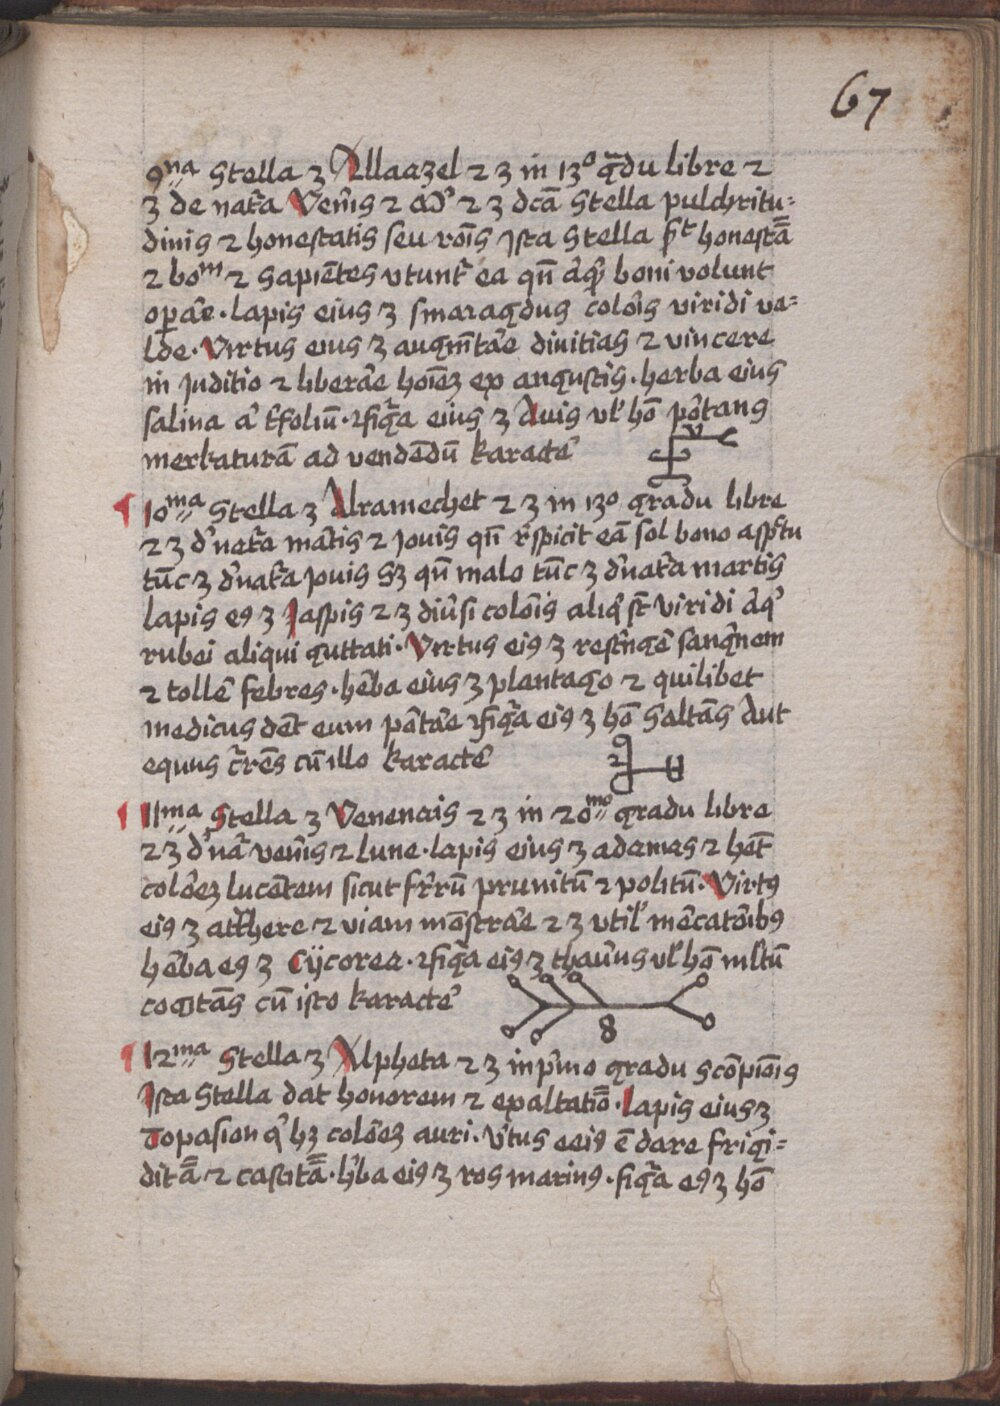 67
9na Stella ꝫ Allaazel ⁊ ꝫ in 13º gͣdu libre ⁊
ꝫ de nat᷑a Ven̄is ⁊ ⁊ ꝫ dcā Stella pulchritu=
dinis ⁊ honestatis seu rōis Ista Stella honestā
⁊ boᵐ ⁊ sapiētes vtunt᷑ ea qn̄ boni volunt
op̄are . lapis eius ꝫ smaragdus colōis viridi va=
lde . Virtus eius ꝫ augm̄tāe divitias ⁊ vincere
in Juditio ⁊ liberāe hoīeꝫ ex angustis . herba eius
salina a' tfoliū . ⁊ figͣa eius ꝫ Avis vl' hō pōtans
merkaturā ad vendēdū karactē
¶ 10ma Stella ꝫ Alramechet ⁊ ꝫ in 13º gradu libre
⁊ ꝫ d' nat᷑a mātis ⁊ Jovis qn̄ rͤspicit eā sol bono aspc̄tu
tūc ꝫ d' nat᷑a Jovis Sꝫ qn̄ malo tūc ꝫ d' nat᷑a martis
lapis eꝰ ꝫ Jaspis ⁊ ꝫ div̄si colōis aliq' st̄ viridi aq'
rubei aliqui guttati . Virtus eiꝰ ꝫ restͥngē sangͥnem
⁊ tollē febres . hēba eius ꝫ plantago ⁊ quilibet
medicus dēt eum pōtāe ⁊ figͣa eiꝰ ꝫ hō saltās Aut
equus c̄rēs cū illo karactē
¶ 11ma Stella ꝫ Venenais ⁊ ꝫ in 20mº gradu libre
⁊ ꝫ d' nā ven̄is ⁊ lune . lapis eius ꝫ adamas ⁊ hēt
colōeꝫ lucētem sicut fr̄rū prunitū ⁊ politū . Virtꝰ
eiꝰ ꝫ att᷑here ⁊ viam mōstrāe ⁊ ꝫ vtil' mēcatōibꝰ
hēba eꝰ ꝫ Cijcorea . ⁊ figͣa eiꝰ ꝫ thaūus vl' hō mltū
cogitās cū isto karactē
8
¶ 12ma Stella ꝫ Alpheta ⁊ ꝫ in pͥmo gradu scōpiōis
Ista Stella dat honorem ⁊ exaltatiō . Lapis eius ꝫ
Topasion q' hꝫ colōeꝫ auri . v̄tus eeiꝰ ē dare frigi=
ditā ⁊ castitā . h'ba eiꝰ ꝫ ros marinꝰ . figͣa eꝰ ꝫ hō